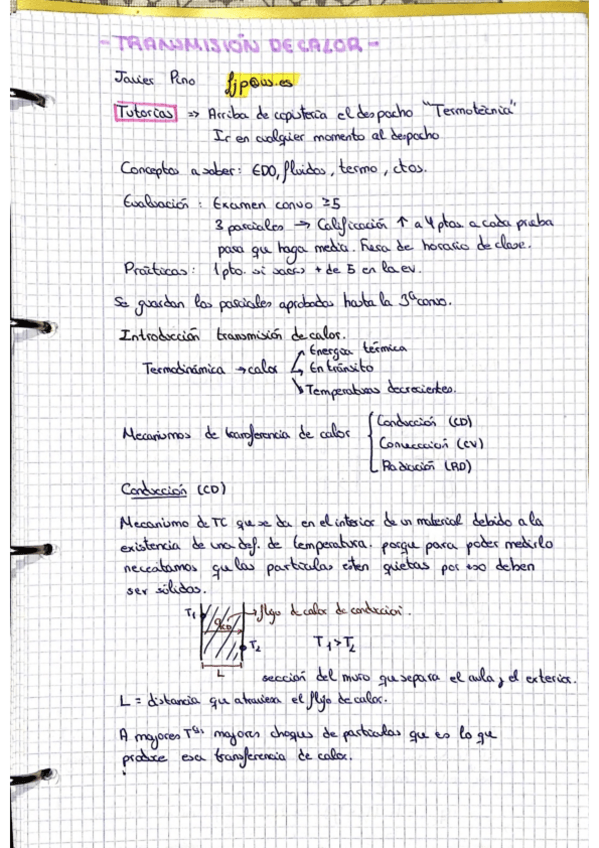 - TRANSMISIÓN DE CALOR -
Javier Pino fjp@us.es
Tutorías => Arriba de copistería el despacho "Termotecnia"
Ir en cualquier momento al despacho
Conceptos a saber: EDO, fluidos, termo, ctos.
Evaluación: Examen convo ≥5
3 parciales → Calificación ↑ a 4 ptos a cada prueba
para que haga media. Fuera de horario de clase.
Prácticas: 1 pto. si sacas + de 5 en la ev.
Se guardan los parciales aprobados hasta la 3ª convo.
Introducción transmisión de calor.
Energía térmica
Termodinámica → calor → En tránsito
Temperaturas decrecientes.
Conducción (CD)
Mecanismos de transferencia de calor
Convección (CV)
Radiación (RD)
Conducción (CD)
Mecanismo de TC que se da en el interior de un material debido a la
existencia de una def. de temperatura. porque para poder medirlo
necesitamos que las partículas estén quietas por eso deben
ser sólidos.
T1 → flujo de calor de conducción.
qCD
T2 T1>T2
L
sección del muro que separa el aula y el exterior.
L = distancia que atraviesa el flujo de calor.
A mayores Tas mayores choques de partículas que es lo que
produce esa transferencia de calor.